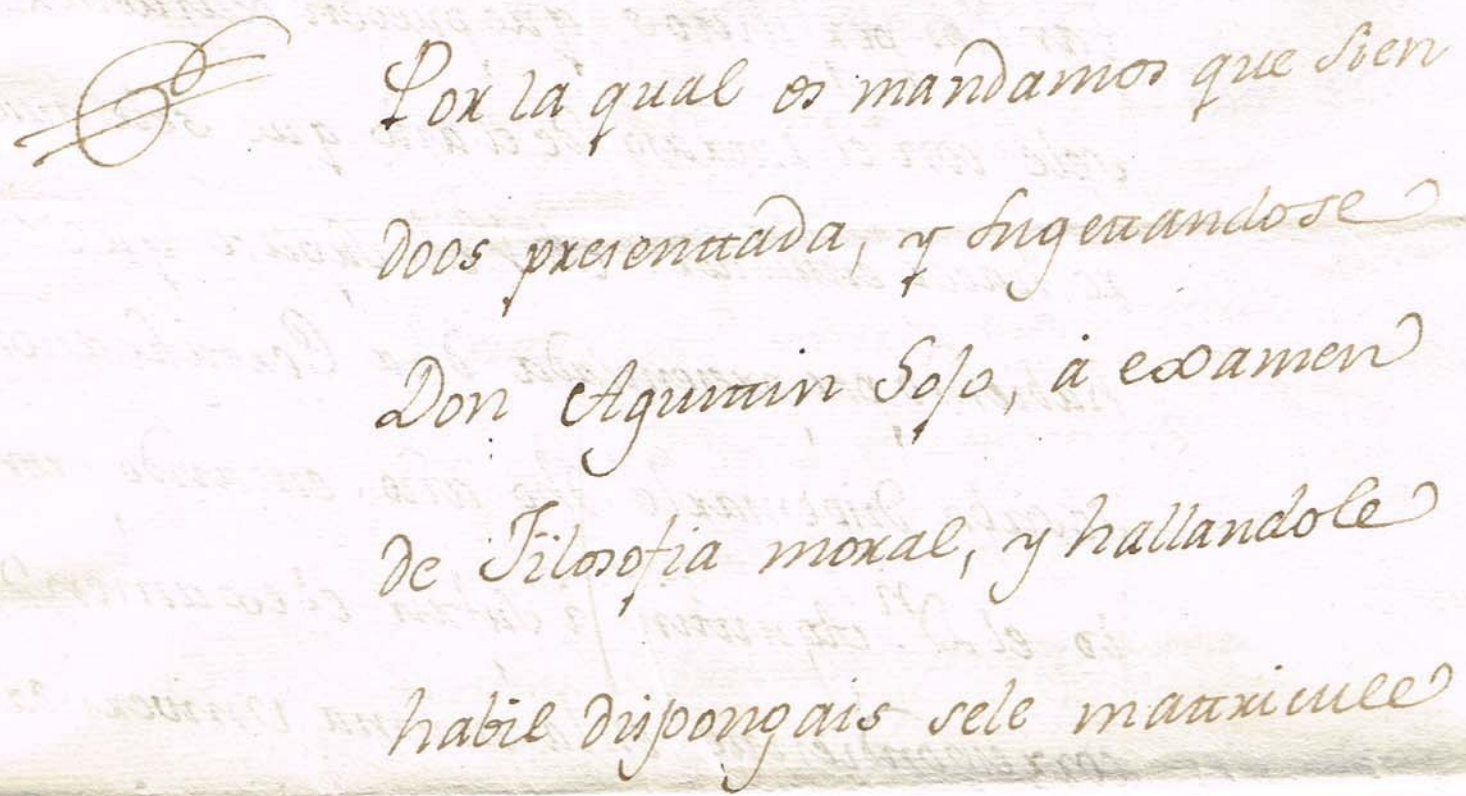 Por la qual os mandamos que sien
doos presentada, y sugetandose
Don Agustin Sojo, á examen
de Filosofia moral, y hallandole
habil dispongais sele matricule